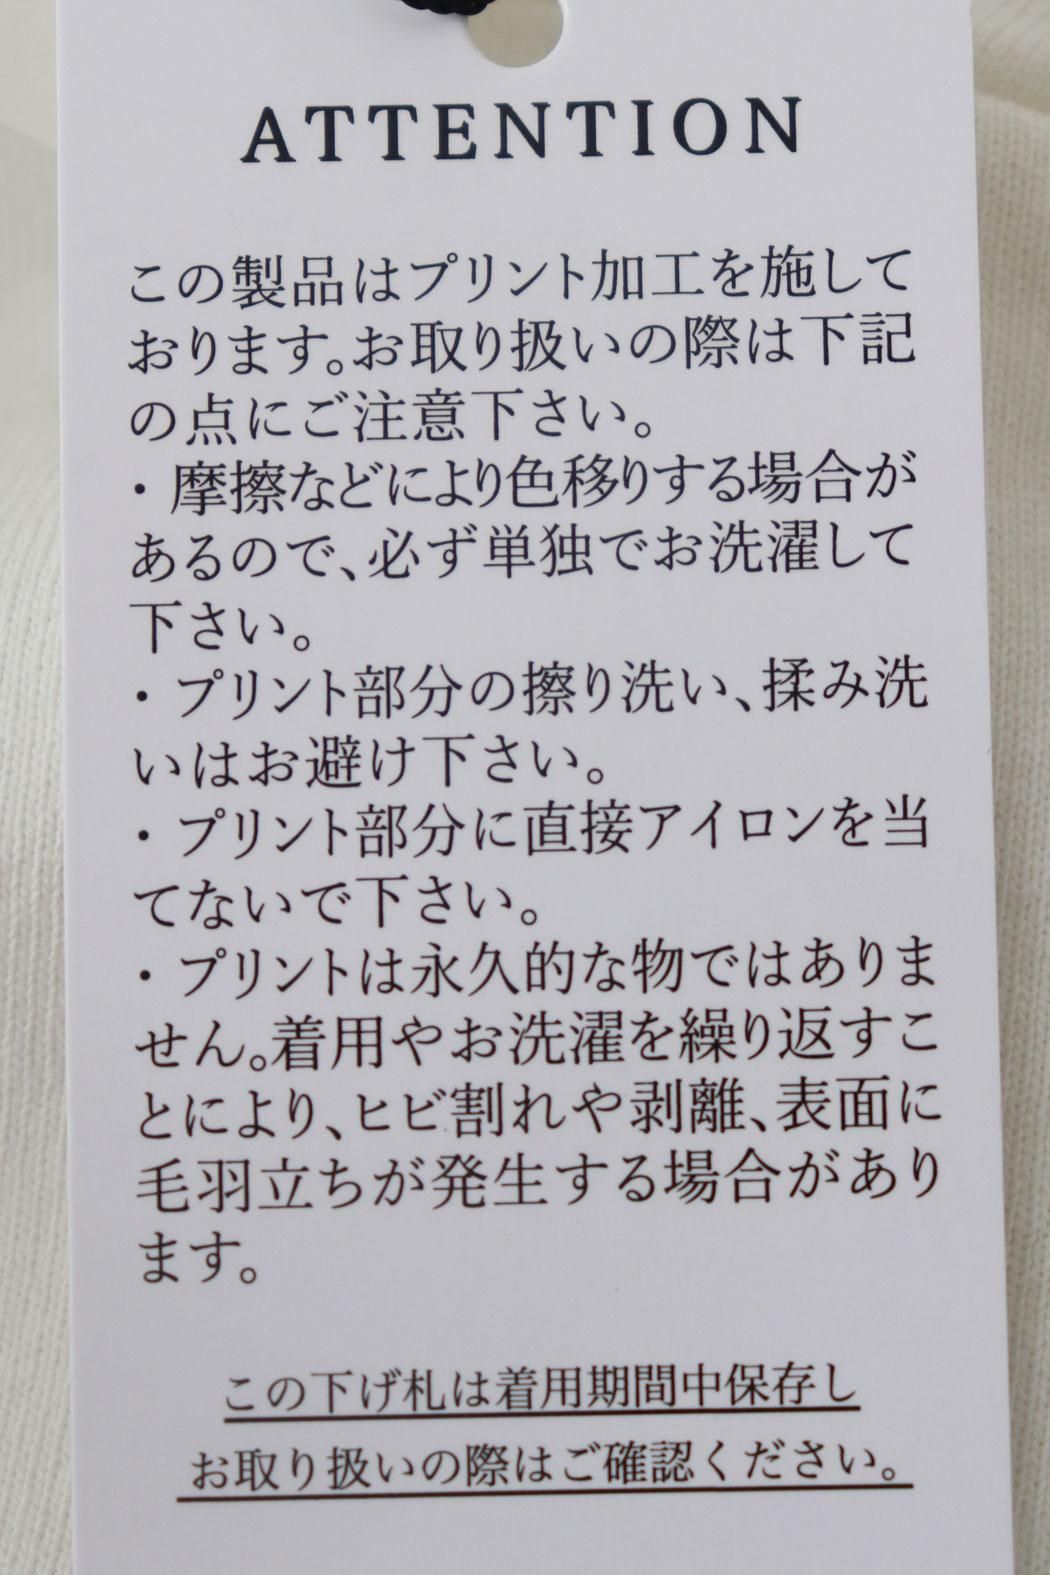 ATTENTION
この製品はプリント加工を施して
おります。お取り扱いの際は下記
の点にご注意下さい。
・摩擦などにより色移りする場合が
あるので、必ず単独でお洗濯して
下さい。
・プリント部分の擦り洗い、揉み洗
いはお避け下さい。
・プリント部分に直接アイロンを当
てないで下さい。
・プリントは永久的な物ではありま
せん。着用やお洗濯を繰り返すこ
とにより、ヒビ割れや剥離、表面に
毛羽立ちが発生する場合があり
ます。
この下げ札は着用期間中保存し
お取り扱いの際はご確認ください。